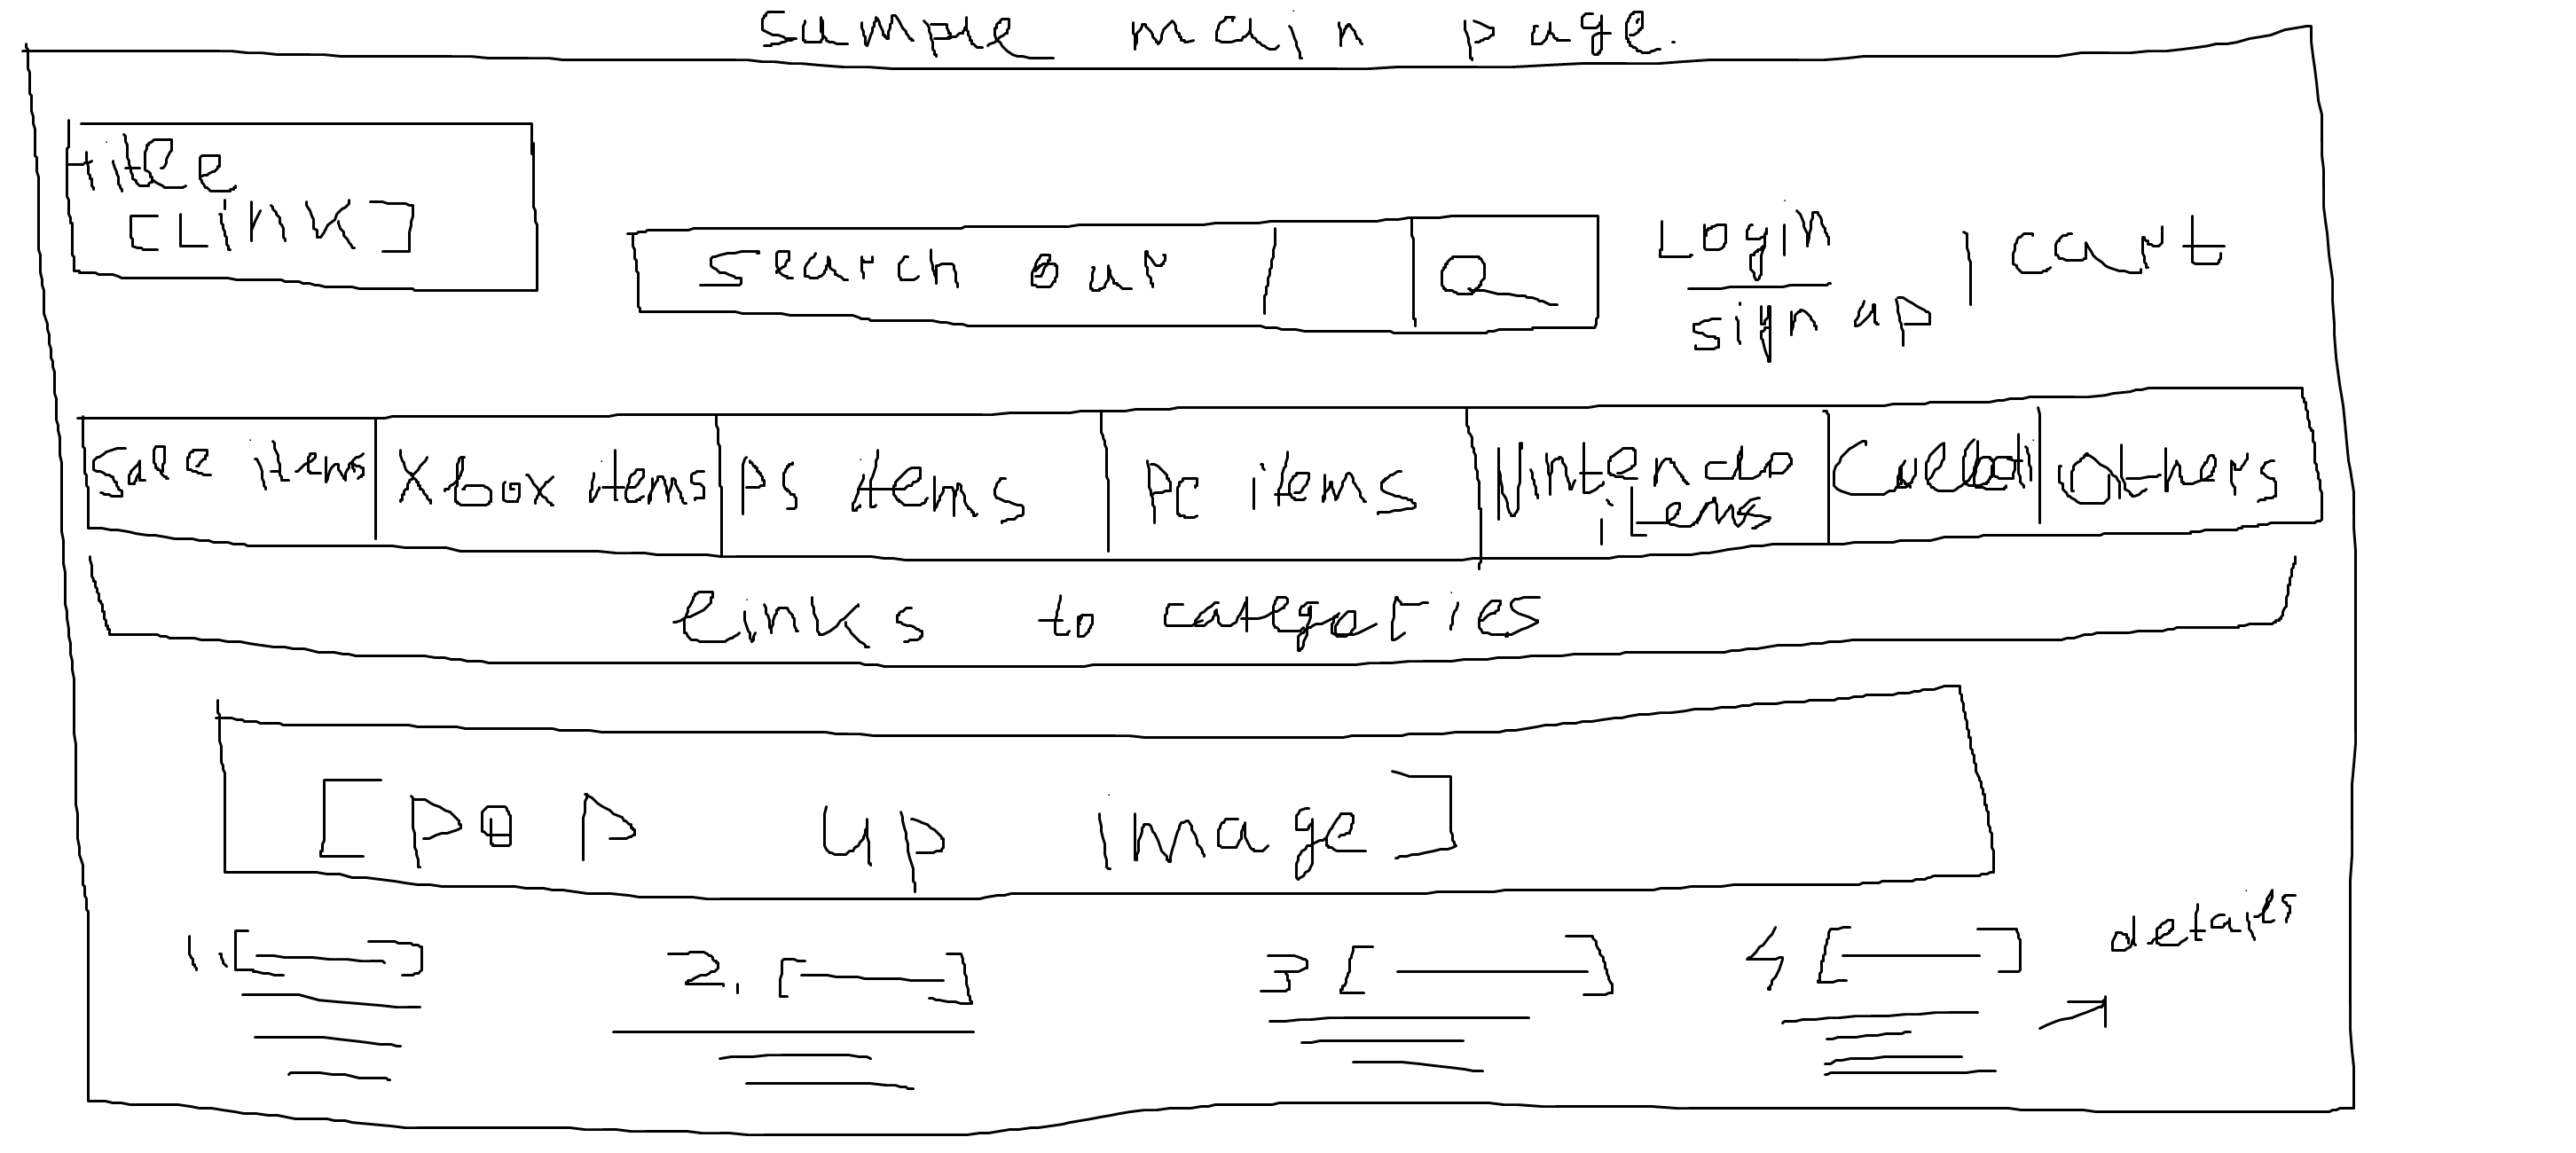 sample main page.
title
[Link]
search our
Login
sign up
| cart
Sale items
Xbox items
PS items
PC items
Nintendo
items
Others
links to categories
[pop up image]
1.
2.
3
4
details